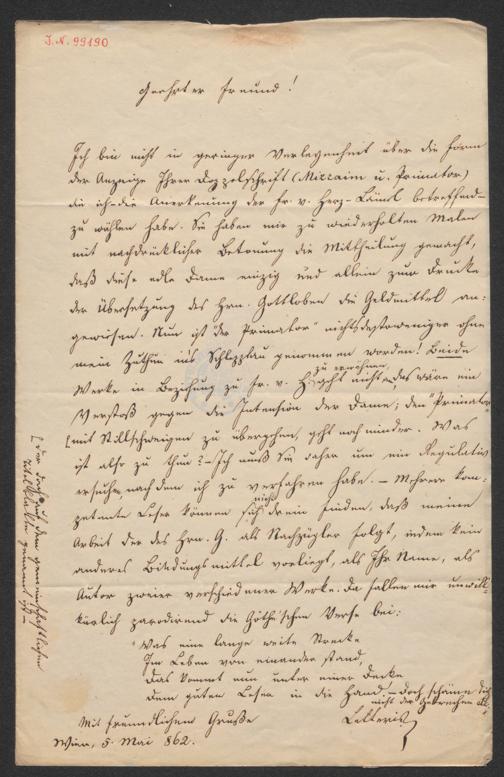 I. N. 99190
Geehrter Freund!
Ich bin nicht in geringer Verlegenheit über die Form
der Anzeige Ihrer Doppelschrift (Mizraim u. Primator)
die ich die Anerkennung der Fr. v. Herz-Lämel betreffend
zu wählen habe. Sie haben mir zu wiederholten Malen
mit nachdrücklicher Betonung die Mittheilung gemacht,
daß diese edle Dame einzig und allein zum Drucke
der Übersetzung des Hrn. Gottloben die Geldmittel an-
gewiesen. Nun ist der "Primator" nichtsdestoweniger ohne
mein Zuthun ins Schlepptau genommen worden! Beide
zu erwähnen
Werke in Beziehung zu Fr. v. H. geht nicht, das wäre ein
Verstoß gegen die Intension der Dame; den "Primator"
mit Stillschweigen zu übergehen, geht noch minder. Was
ist also zu thun? – Ich muß Sie daher um ein Regulativ
ersuchen, nach dem ich zu verfahren habe. – Mehrere kom-
petente Leser können sich nicht darein finden, daß meine
Arbeit der des Hrn. G. als Nachzügler folgt, indem kein
anderes Bindungsmittel vorliegt, als Ihr Name, als
Autor zweier verschiedener Werke. Da fallen mir unwill-
kürlich parodirend die Göthe'schen Verse bei:
"Was eine lange weite Strecke
Im Leben von einander stand,
Das kommt nun unter einer Decke
Dem guten Leser in die Hand. – Doch schäme dich
nicht der Gebrechen
Mit freundlichem Gruße
Letteris
Wien, 5. Mai 862.
[der doch auf dem gemeinschaftlichen
Titelblatte genannt ist